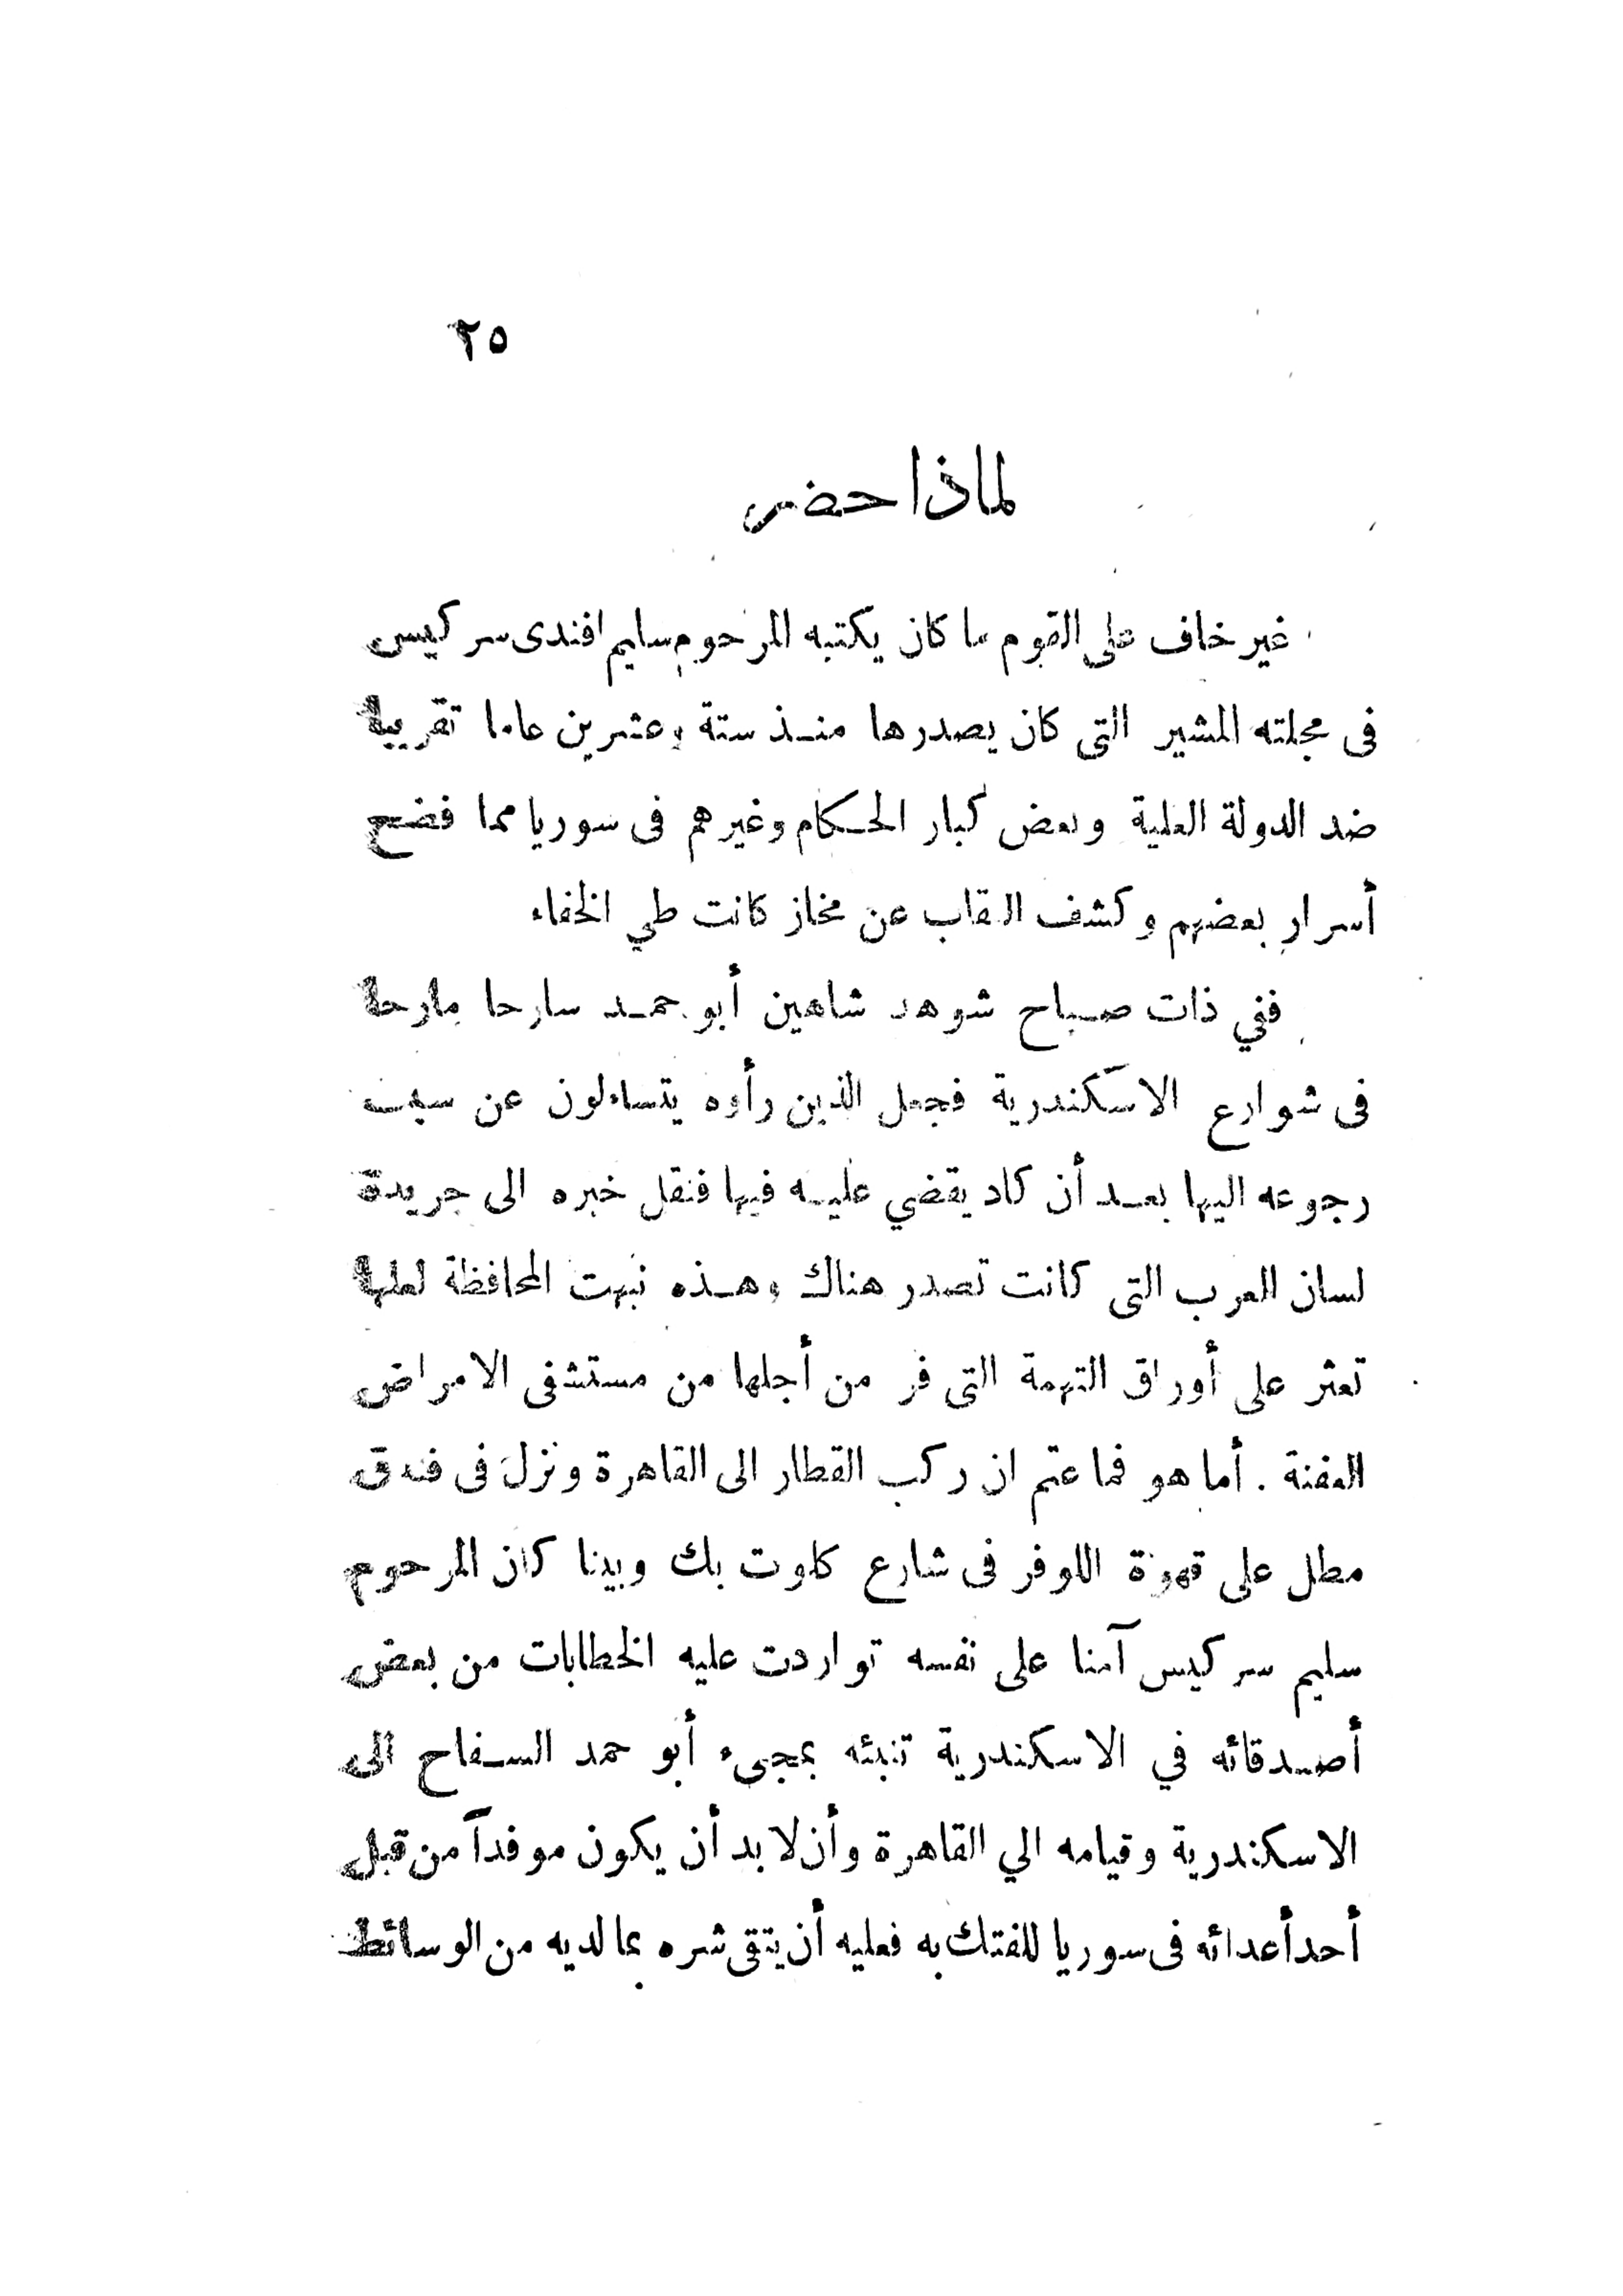 ٢٥
لماذا حضر
غير خاف على القوم ما كان يكتبه المرحوم سليم افندى سركيس
فى مجلته المشير التى كان يصدرها منذ ستة وعشرين عاما تقريبا
ضد الدولة العلية وبعض كبار الحكام وغيرهم فى سوريا مما فضح
أسرار بعضهم وكشف النقاب عن مخاز كانت طي الخفاء
ففي ذات صباح شوهد شاهين أبو حمد سارحا مارحا
فى شوارع الاسكندرية فجعل الذين رأوه يتساءلون عن سبب
رجوعه اليها بعد أن كاد يقضي عليه فيها فنقل خبره الى جريدة
لسان العرب التى كانت تصدر هناك وهذه نبهت المحافظة لعلها
تعثر على أوراق التهمة التى فر من أجلها من مستشفى الامراض
العفنة . أما هو فما عتم ان ركب القطار الى القاهرة ونزل فى فندق
مطل على قهوة اللوفر فى شارع كلوت بك وبينا كان المرحوم
سليم سركيس آمنا على نفسه تواردت عليه الخطابات من بعض
أصدقائه في الاسكندرية تنبئه بمجىء أبو حمد السفاح الى
الاسكندرية وقيامه الي القاهرة وأن لا بد أن يكون موفداً من قبل
أحد أعدائه فى سوريا للفتك به فعليه أن يتقى شره بما لديه من الوسائط